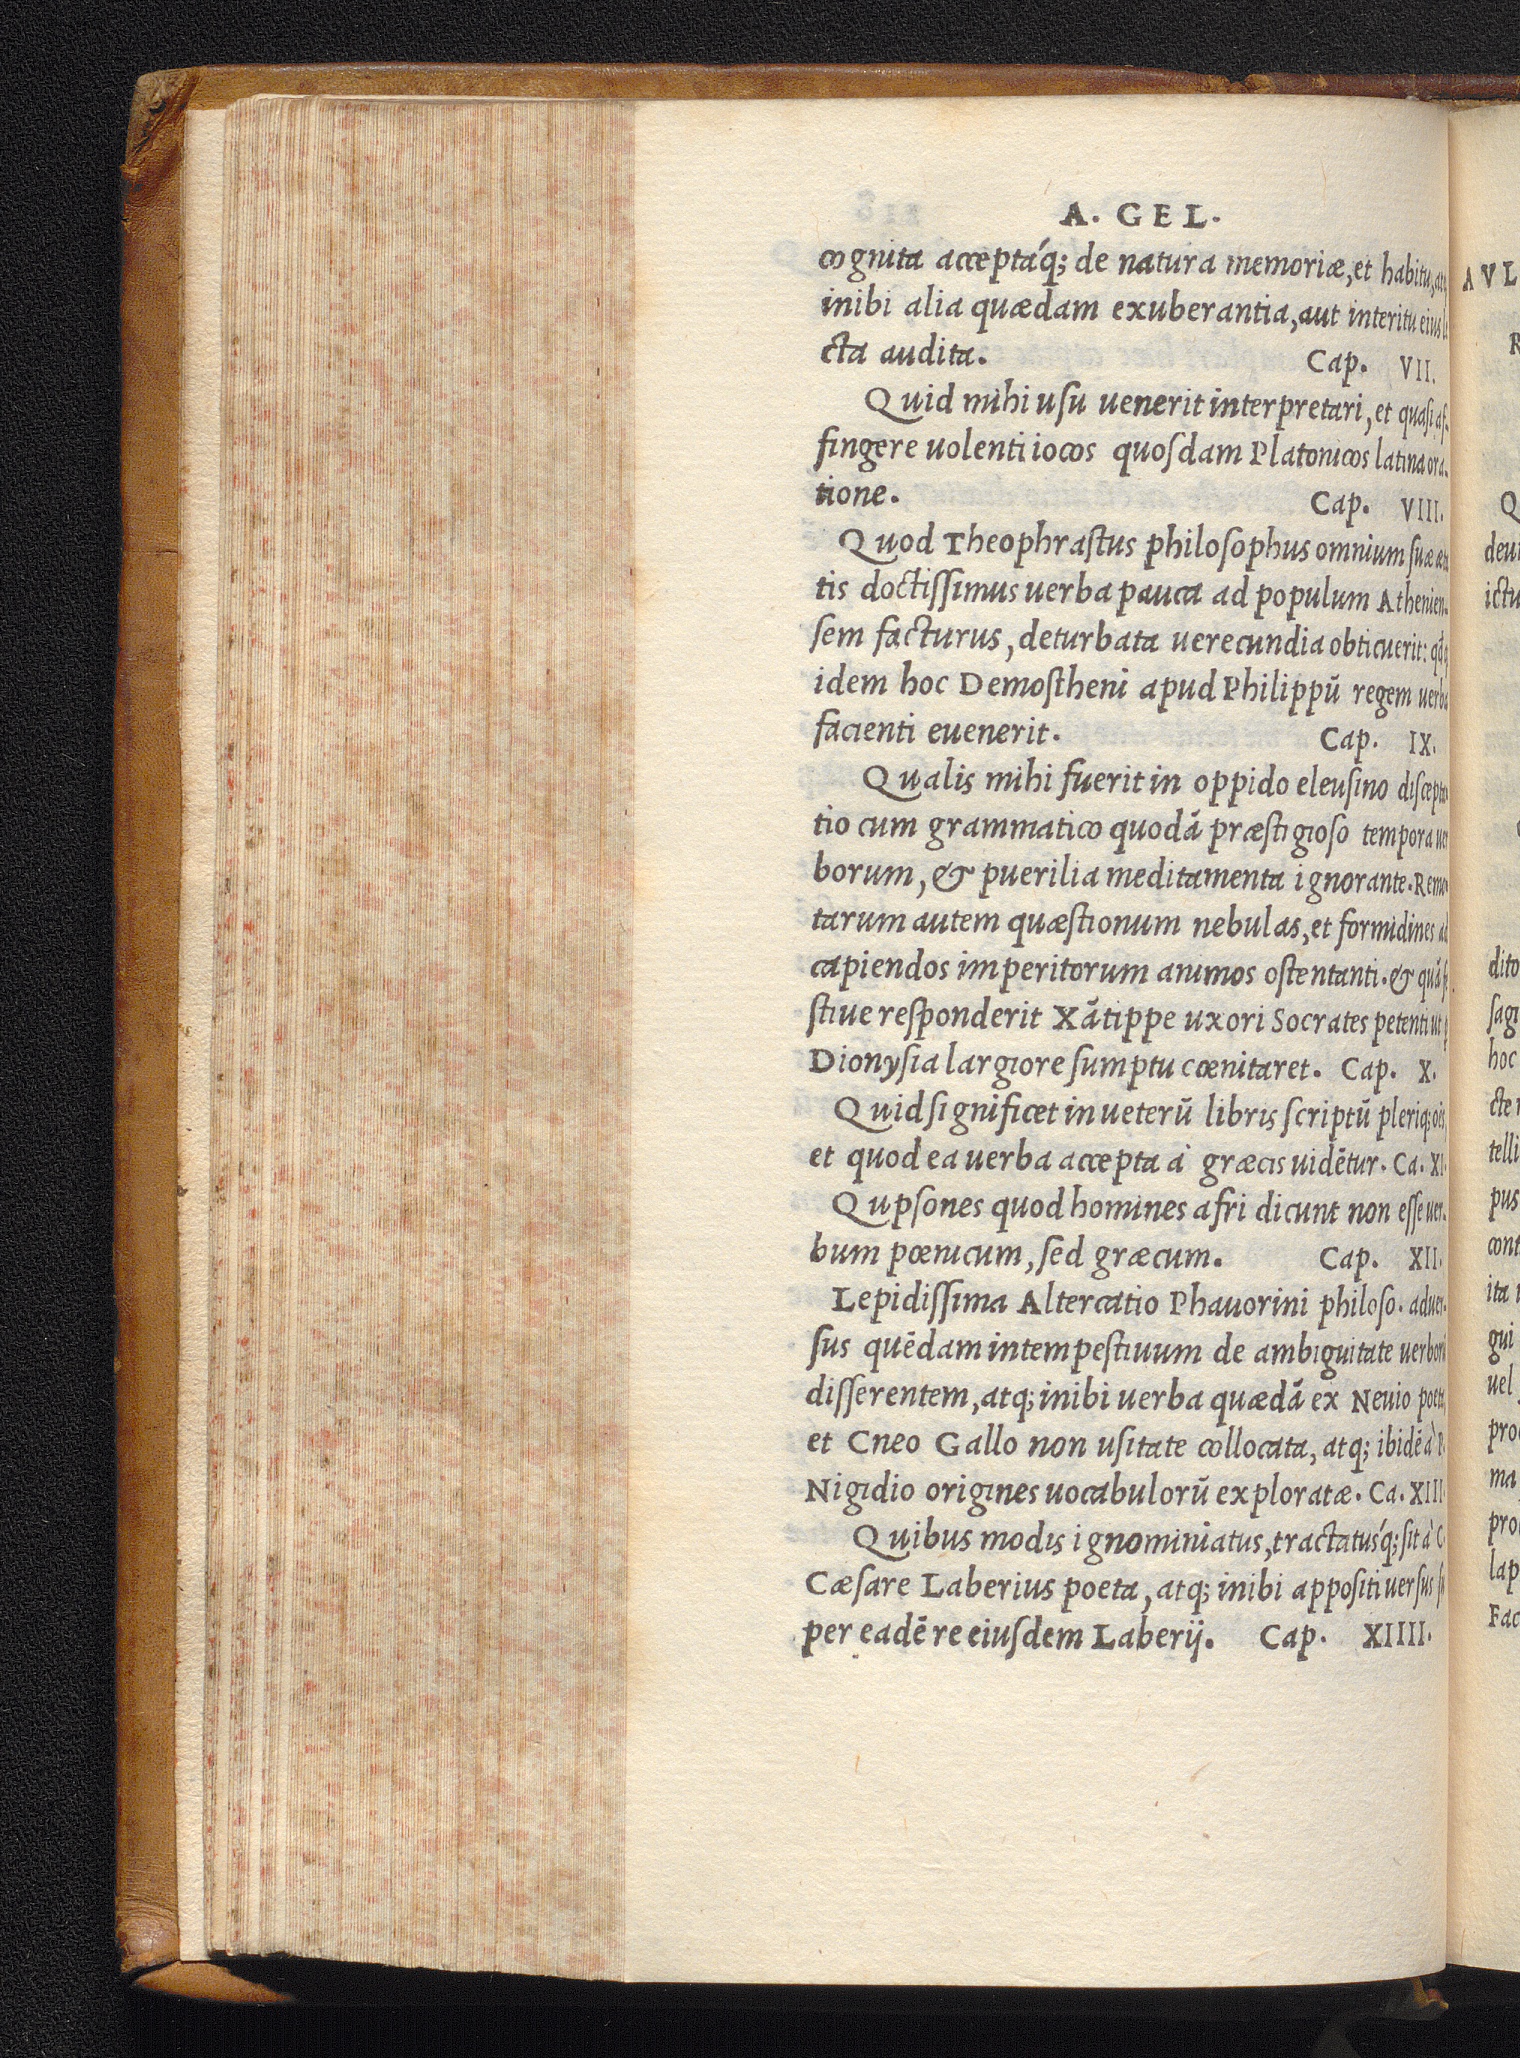 A. GEL.
cognita acceptáq; de natura memoriæ, et habitu, atq;
inibi alia quædam exuberantia, aut interitu eius le
cta audita. Cap. VII.
Quid mihi usu uenerit interpretari, et quasi af-
fingere uolenti iocos quosdam Platonicos latina ora-
tione. Cap. VIII.
Quod Theophrastus philosophus omnium suæ æta
tis doctissimus uerba pauca ad populum Athenien-
sem facturus, deturbata uerecundia obticuerit:
idem hoc Demostheni apud Philippū regem uerba
facienti euenerit. Cap. IX.
Qualis mihi fuerit in oppido eleusino discepta
tio cum grammatico quodā præstigioso tempora uer
borum, & puerilia meditamenta ignorante. Remo-
tarum autem quæstionum nebulas, et formidines ad
capiendos imperitorum animos ostentanti. & quā fe
stiue responderit Xātippe uxori Socrates petenti ut p
Dionysia largiore sumptu cœnitaret. Cap. X.
Quid significet in ueterū libris scriptū pleriq; oīs,
et quod ea uerba accepta à græcis uidētur. Ca. XI.
Qupsones quod homines afri dicunt non esse uer-
bum pœnicum, sed græcum. Cap. XII.
Lepidissima Altercatio Phauorini philoso. aduer-
sus quēdam intempestiuum de ambiguitate uerborū
disserentem, atq; inibi uerba quædā ex Neuio poeta,
et Cneo Gallo non usitate collocata, atq; ibidē à P.
Nigidio origines uocabulorū exploratæ. Ca. XIII.
Quibus modis ignominiatus, tractatusq́; sit à C.
Cæsare Laberius poeta, atq; inibi appositi uersus su
per eadē re eiusdem Laberij. Cap. XIIII.
AVL